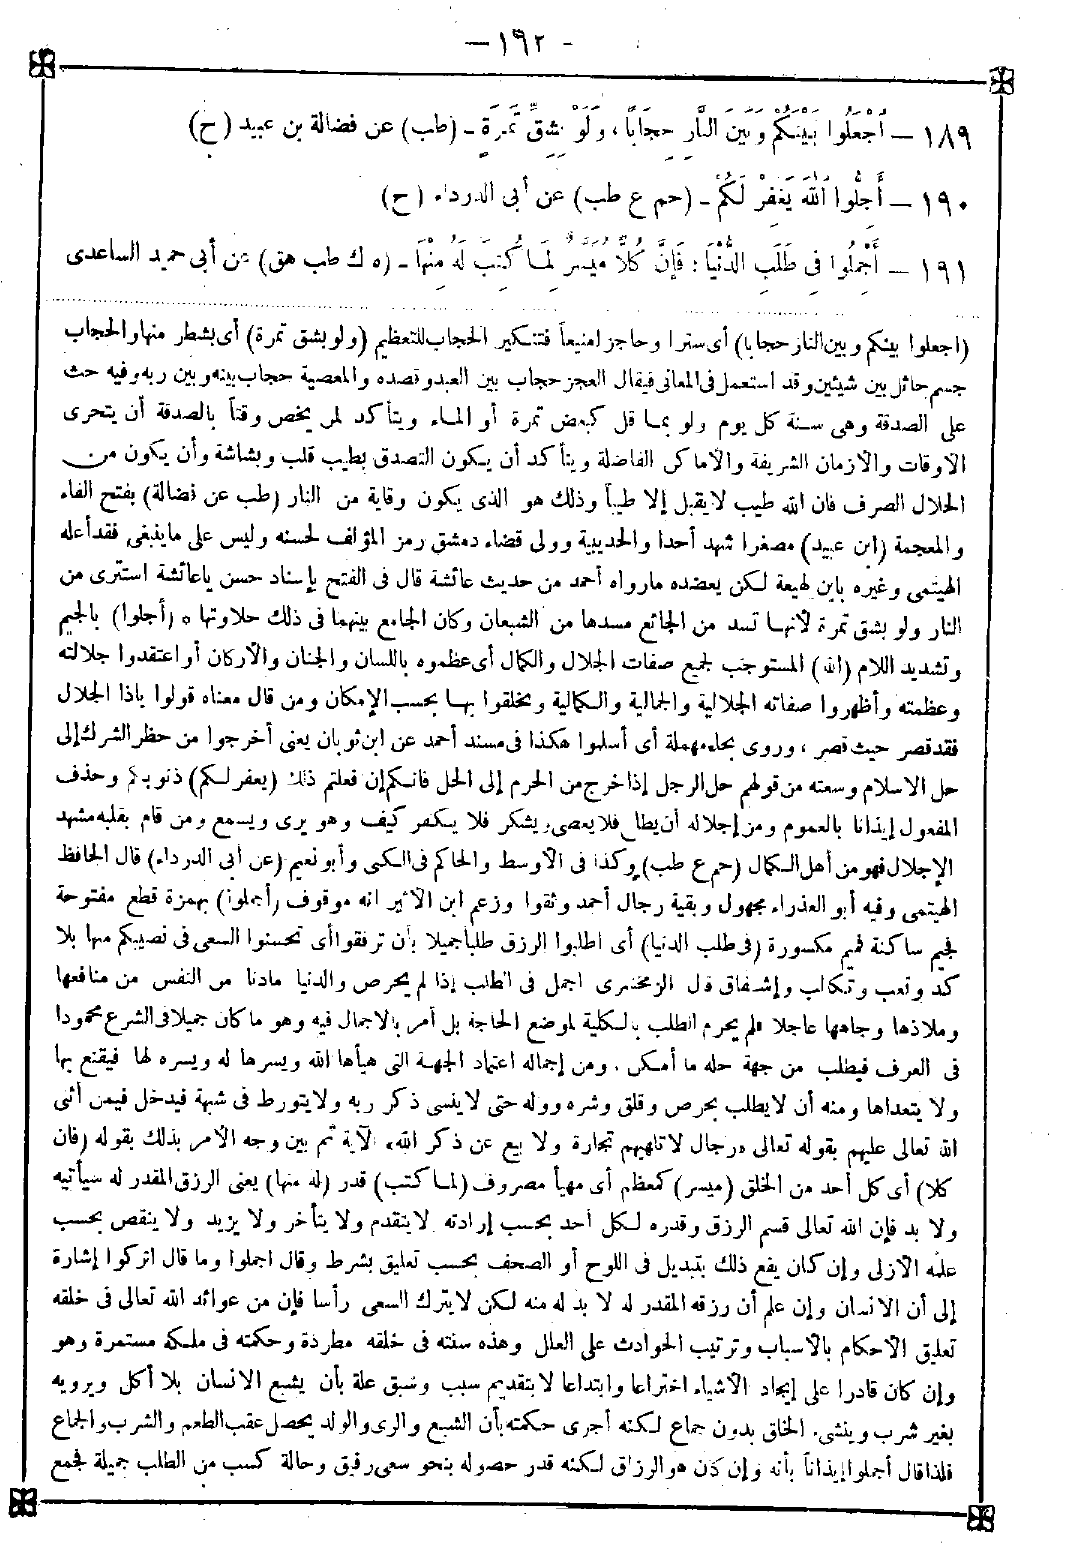 - ١٩٢ -
١٨٩ – اجْعَلُوا بَيْنَكُمْ وَبَيْنَ النَّارِ حِجَابًا، وَلَوْ بِشِقِّ تَمْرَةٍ - (طب) عن فضالة بن عبيد (ح)
١٩٠ – أَجِلُّوا اللهَ يَغْفِرْ لَكُمْ - (حم ع طب) عن أبى الدرداء (ح)
١٩١ – أَجْمِلُوا فِى طَلَبِ الدُّنْيَا؛ فَإِنَّ كُلًّا مُيَسَّرٌ لِمَا كُتِبَ لَهُ مِنْهَا - (ه ك طب هق) عن أبى حميد الساعدى
(اجعلوا بينكم وبين النار حجابا) أى سترا وحاجزا منيعاً فتنكير الحجاب للتعظيم (ولو بشق تمرة) أى بشطر منها والحجاب
جسم حائل بين شيئين وقد استعمل فى المعانى فيقال العجز حجاب بين العبد وقصده والمعصية حجاب بينه وبين ربه وفيه حث
على الصدقة وهى سنة كل يوم ولو بما قل كبعض تمرة أو الماء ويتأكد لمن يخص وقتاً بالصدقة أن يتحرى
الاوقات والازمان الشريفة والأماكن الفاضلة ويتأكد أن يكون التصدق بطيب قلب وبشاشة وأن يكون من
الحلال الصرف فان الله طيب لا يقبل إلا طيباً وذلك هو الذى يكون وقاية من النار (طب عن فضالة) بفتح الفاء
والمعجمة (ابن عبيد) مصغرا شهد أحدا والحديبية وولى قضاء دمشق رمز المؤلف لحسنه وليس على ما ينبغى فقد أعله
الهيتمى وغيره بابن لهيعة لكن يعضده ما رواه أحمد من حديث عائشة قال فى الفتح بإسناد حسن يا عائشة استترى من
النار ولو بشق تمرة لأنها تسد من الجائع مسدها من الشبعان وكان الجامع بينهما فى ذلك حلاوتها ه (أجلوا) بالجيم
وتشديد اللام (الله) المستوجب لجميع صفات الجلال والكمال أى عظموه باللسان والجنان والأركان أو اعتقدوا جلالته
وعظمته وأظهروا صفاته الجلالية والجمالية والكمالية وتخلقوا بها بحسب الإمكان ومن قال معناه قولوا ياذا الجلال
فقد قصر حيث قصر، وروى بحاء مهملة أى أسلموا هكذا فى مسند أحمد عن ابن ثوبان يعنى أخرجوا من حظر الشرك إلى
حل الاسلام وسعته من قولهم حل الرجل إذا خرج من الحرم إلى الحل فانكم إن فعلتم ذلك (يغفر لكم) ذنوبكم وحذف
المفعول إيذانا بالعموم ومن إجلاله أن يطاع فلا يعصى ويشكر فلا يكفر كيف وهو يرى ويسمع ومن قام بقلبه مشهد
الإجلال فهو من أهل الكمال (حم ع طب) وكذا فى الأوسط والحاكم فى الكنى وأبو نعيم (عن أبى الدرداء) قال الحافظ
الهيتمى وفيه أبو العذراء مجهول وبقية رجال أحمد وثقوا وزعم ابن الأثير انه موقوف (أجملوا) بهمزة قطع مفتوحة
فجيم ساكنة فميم مكسورة (فى طلب الدنيا) أى اطلبوا الرزق طلباً جميلا بأن ترفقوا أى تحسنوا السعى فى نصيبكم منها بلا
كد وتعب وتكالب وإشفاق قال الزمخشرى اجمل فى الطلب إذا لم يحرص والدنيا مادنا من النفس من منافعها
وملاذها وجاهها عاجلا فلم يحرم الطلب بالكلية لموضع الحاجة بل أمر بالاجمال فيه وهو ما كان جميلا فى الشرع محمودا
فى العرف فيطلب من جهة حله ما أمكن، ومن إجماله اعتماد الجهة التى هيأها الله ويسرها له ويسره لها فيقنع بها
ولا يتعداها ومنه أن لا يطلب بحرص وقلق وشره ووله حتى لا ينسى ذكر ربه ولا يتورط فى شبهة فيدخل فيمن أثنى
الله تعالى عليهم بقوله تعالى «رجال لا تلهيهم تجارة ولا بيع عن ذكر الله» الآية ثم بين وجه الأمر بذلك بقوله (فان
كلا) أى كل أحد من الخلق (ميسر) كمعظم أى مهيأ مصروف (لما كتب) قدر (له منها) يعنى الرزق المقدر له سيأتيه
ولا بد فإن الله تعالى قسم الرزق وقدره لكل أحد بحسب إرادته لا يتقدم ولا يتأخر ولا يزيد ولا ينقص بحسب
علمه الأزلى وإن كان يقع ذلك بتبديل فى اللوح أو الصحف بحسب تعليق بشرط وقال اجملوا وما قال اتركوا إشارة
إلى أن الانسان وإن علم أن رزقه المقدر له لا بد له منه لكن لا يترك السعى رأسا فإن من عوائد الله تعالى فى خلقه
تعليق الأحكام بالأسباب وترتيب الحوادث على العلل وهذه سنته فى خلقه مطردة وحكمته فى ملكه مستمرة وهو
وإن كان قادرا على إيجاد الأشياء اختراعا وابتداعا لا بتقديم سبب وسبق علة بأن يشبع الانسان بلا أكل ويرويه
بغير شرب وينشىء الخلق بدون جماع لكنه أجرى حكمته بأن الشبع والرى والولد يحصل عقب الطعم والشرب والجماع
فلذا قال أجملوا إيذاناً بأنه وإن كان هو الرزاق لكنه قدر حصوله بنحو سعى رقيق وحالة كسب من الطلب جميلة فجمع